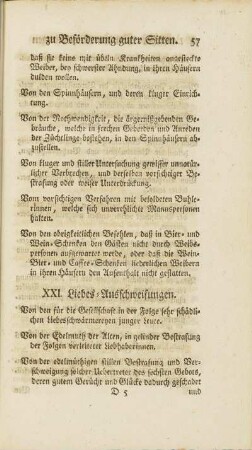 zu Beförderung guter Sitten. 57
daß sie keine mit übeln Krankheiten angesteckte
Weiber, bey schwerster Ahndung, in ihren Häusern
dulden wollen.
Von den Spinnhäusern, und deren kluger Einrich-
tung.
Von der Nothwendigkeit, die ärgernißgebenden Ge-
bräuche, welche in frechen Geberden und Anreden
der Züchtlinge bestehen, in den Spinnhäusern ab-
zustellen.
Von kluger und stiller Untersuchung gewisser unnatür-
licher Verbrechen, und derselben vorsichtiger Be-
strafung oder weiser Unterdrückung.
Vom vorsichtigen Verfahren mit besoldeten Buhle-
rinnen, welche sich unverehlichte Mannspersonen
halten.
Von den obrigkeitlichen Befehlen, daß in Bier- und
Wein-Schenken den Gästen nicht durch Weibs-
personen aufgewartet werde, und daß die Wein-
Bier- und Caffee-Schenken liederlichen Weibern
in ihren Häusern den Aufenthalt nicht gestatten.
XXI. Liebes-Ausschweifungen.
Von den für die Gesellschaft in der Folge sehr schäd-
lichen Liebesschwärmereyen junger Leute.
Von der Edelmuth der Alten, in gelinder Bestrafung
der Folgen verleiteter Liebhaberinnen.
Von der edelmüthigen stillen Bestrafung und Ver-
schweigung solcher Uebertreter des sechsten Gebots,
deren gutem Gerücht und Glücke dadurch geschadet
D 5 und